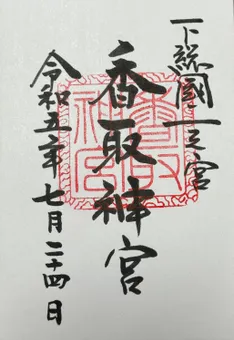 下総國一之宮
香取神宮
令和五年七月二十四日
香取神宮